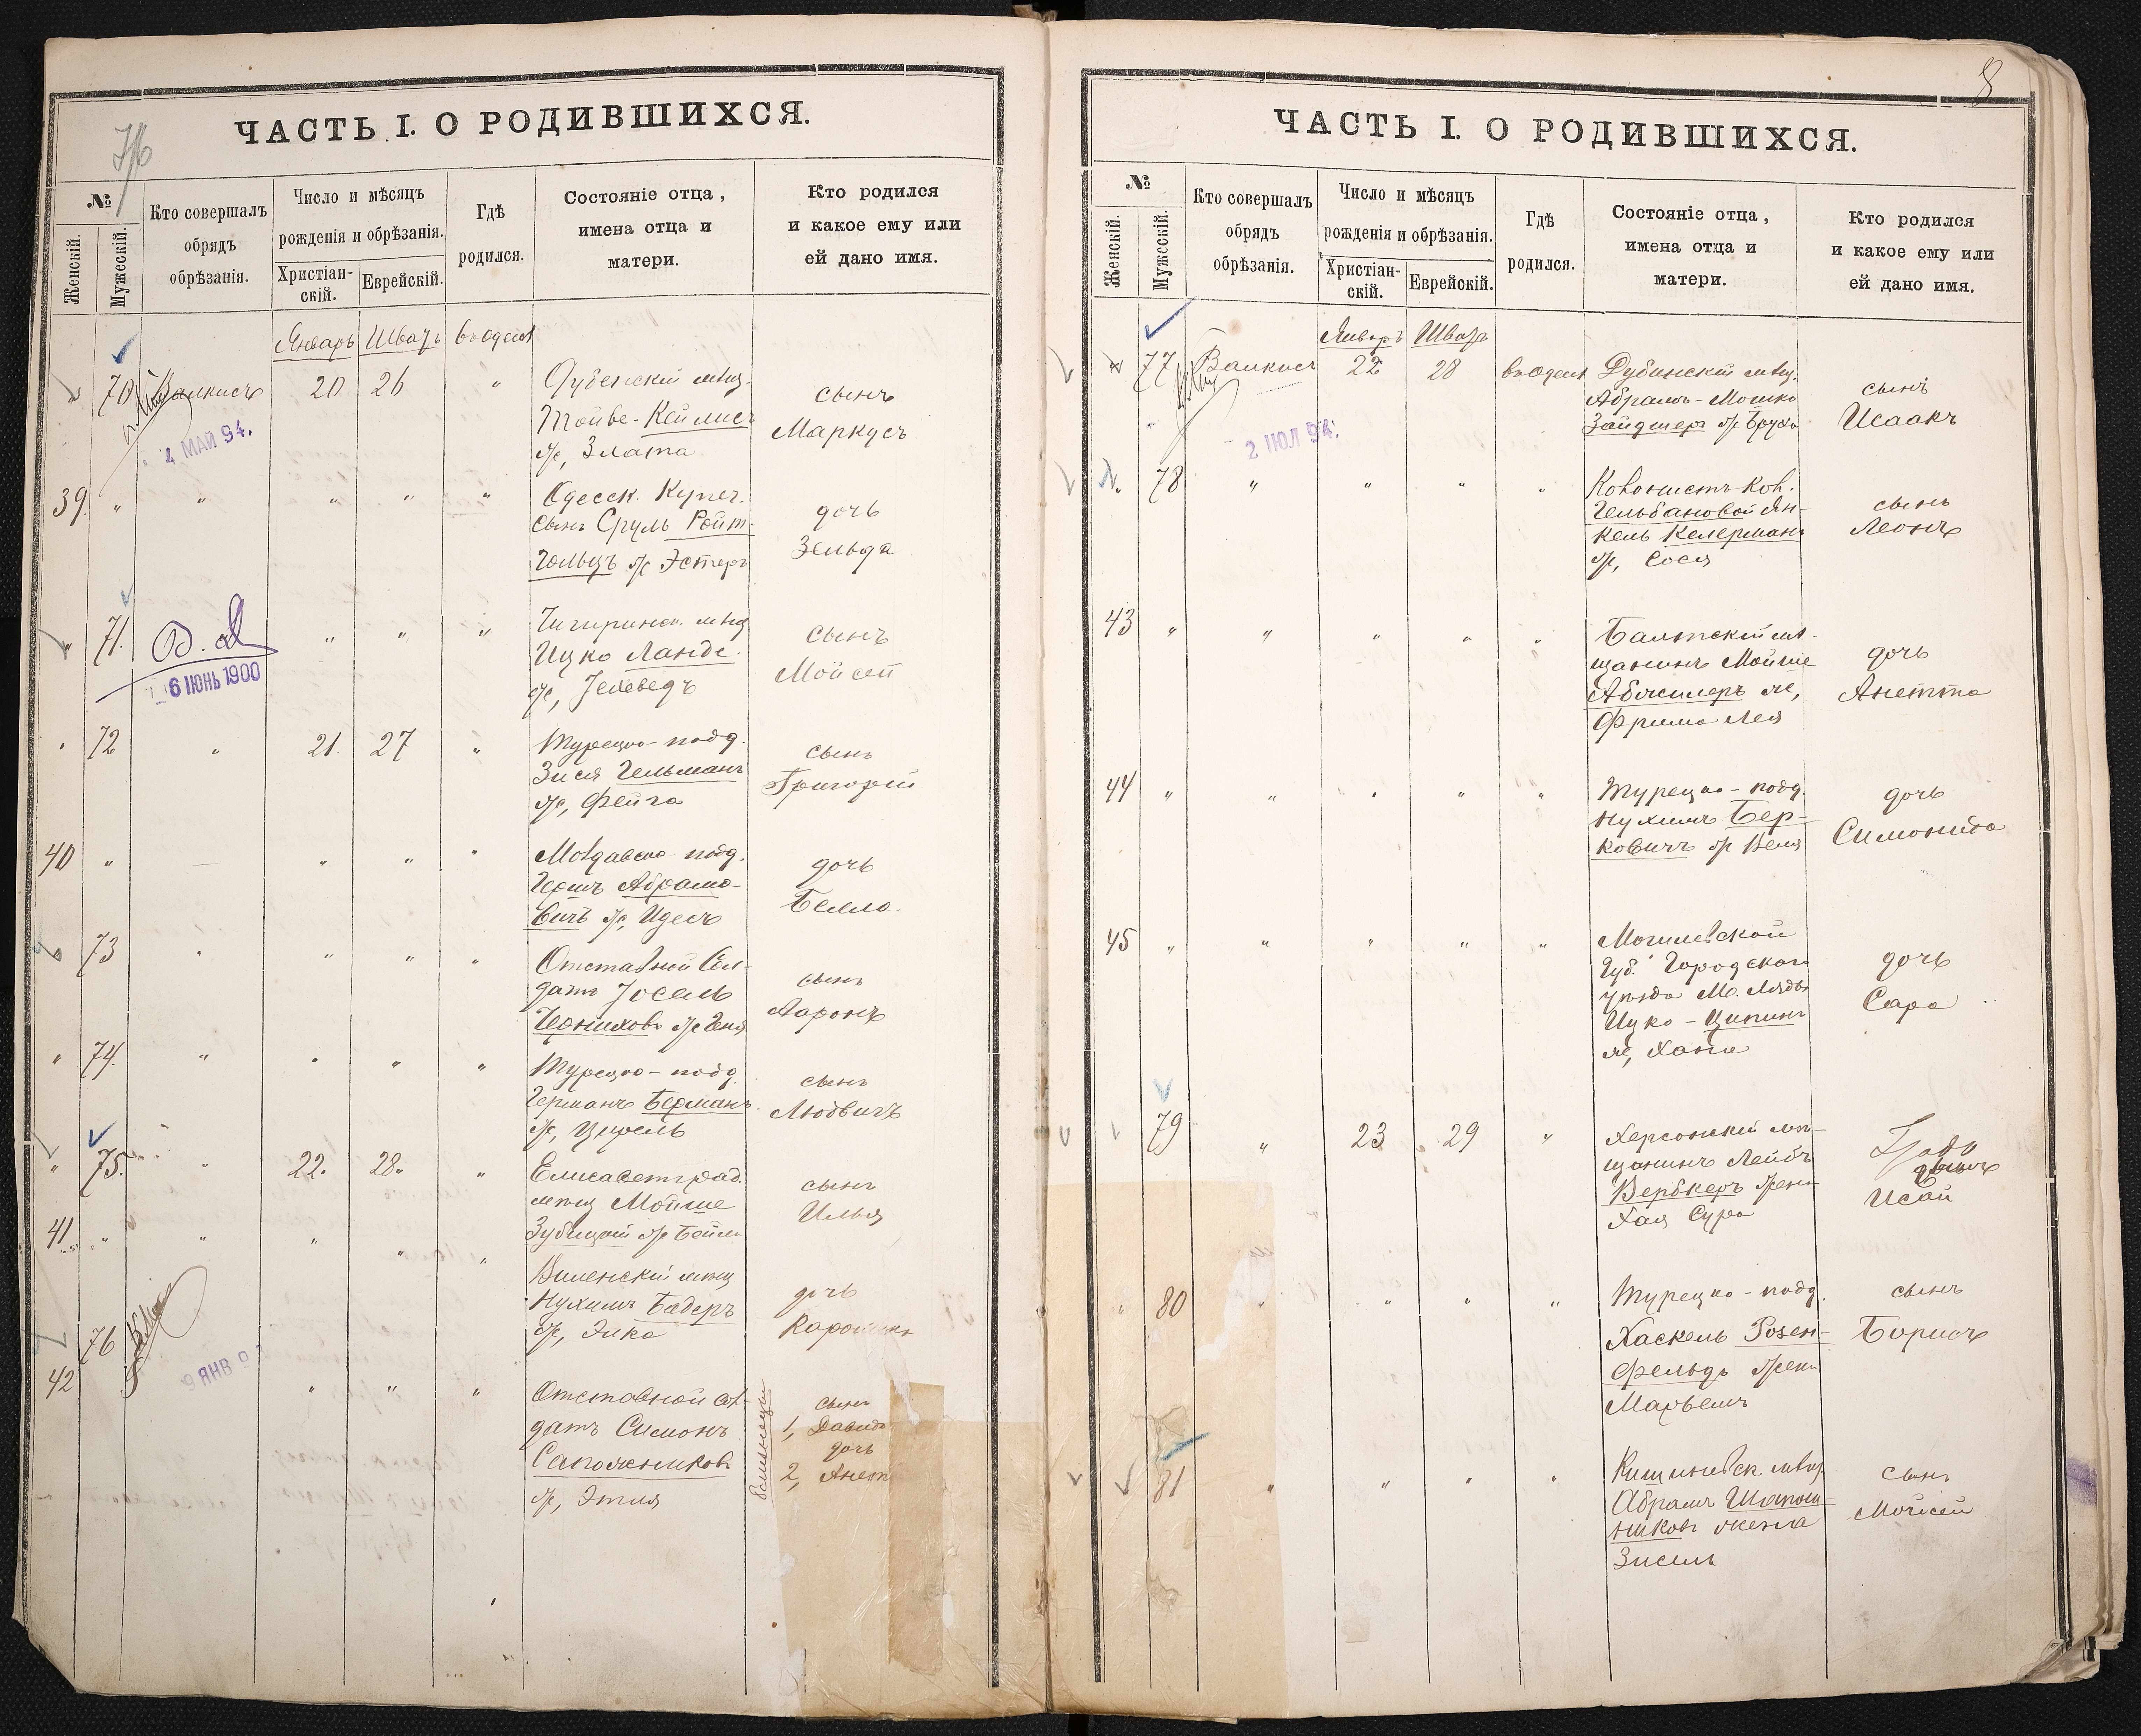 ЧАСТЬ I. О РОДИВШИХСЯ.
№
Женскій.
Мужескій.
Кто совершалъ
обрядъ
обрѣзанія.
Число и мѣсяцъ
рожденія и обрѣзанія.
Христіан-
скій.
Еврейскій.
Гдѣ
родился.
Состояніе отца,
имена отца и
матери.
Кто родился
и какое ему или
ей дано имя.
Январь Шватъ
70 20 26 "
Тойве-Кейлисъ
ж, Злата
сынъ
Маркусъ
4 МАЙ 94.
39. " " " " "
Одесск. Купеч.
сынъ Сруль Ройт-
гольцъ ж Эстеръ
дочь
Зельда
71. " " "
Ицко Ланде.
сынъ
Мойсей
6 ІЮНЬ 1900
72 " 21. 27 "
Турецко-подд.
Зися Гельманъ
ж, Фейга
сынъ
Григорій
40 " — " " "
Молдавско-подд.
Гершъ Абрамо-
вичъ ж,
дочь
Белла
73 " " " "
Отставной Сол-
датъ Іосель
Черниховъ ж Геня
сынъ
Ааронъ
" 74. " " " "
Турецко-подд.
Германъ Берманъ
ж, Цирель
сынъ
Людвигъ
" 75. " 22. 28. "
Елисаветград.
мѣщ Мойше
Зубицкій ж Бейла
сынъ
Илья
41 " " " " "
Виленскій мѣщ
Нухимъ Бадеръ
ж, Элка
дочь
76
42 " " "
9 ЯНВ 9
Отставной сол-
датъ Симонъ
Сапожниковъ
ж, Этля
близнецы
сынъ
1, Давидъ
дочь
2, Анет
8
ЧАСТЬ I. О РОДИВШИХСЯ.
№
Женскій.
Мужескій.
Кто совершалъ
обрядъ
обрѣзанія.
Число и мѣсяцъ
рожденія и обрѣзанія.
Христіан-
скій.
Еврейскій.
Гдѣ
родился.
Состояніе отца,
имена отца и
матери.
Кто родился
и какое ему или
ей дано имя.
Январь Шватъ
77 22 28
Дубинскій мѣщ.
Абрамъ-Мошко
Зайдшеръ ж Бруха
сынъ
Исаакъ
2 ІЮЛ 94.
78 " " " "
Колонистъ Кол.
Гельбановой Ян-
кель Келерманъ
ж, Сося
сынъ
Леонъ
43 " " " " "
Балтскій мѣ-
щанинъ Мойше
ж,
Фрима Лея
дочь
Анетта
44 " " " " "
Турецко-подд.
Нухимъ Бер-
ковичъ ж Веля
дочь
45 " " " " "
Могилевской
Губ. Городского
уѣзда М. Ляды
Ицко-Ципинъ
ж, Хана
дочь
Сара
79 " 23 29 "
Херсонскій мѣ-
щанинъ Лейбъ
Вербкеръ жена
Хая Сура
Исай
" 80 " " " "
Турецко-подд.
Хаскель Розен-
фельдъ жена
Марьемъ
сынъ
Борисъ
81 " " " "
Кишиневск. мѣщ.
Абрамъ Шапош-
никовъ жена
Зисель
сынъ
Мойсей